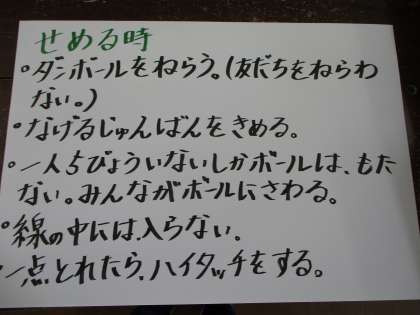 せめる時
・ダンボールをねらう。(友だちをねらわ
ない。)
・なげるじゅんばんをきめる。
・一人5びょういないしかボールは、もた
ない。みんながボールにさわる。
・線の中には、入らない。
・一点とれたら、ハイタッチをする。